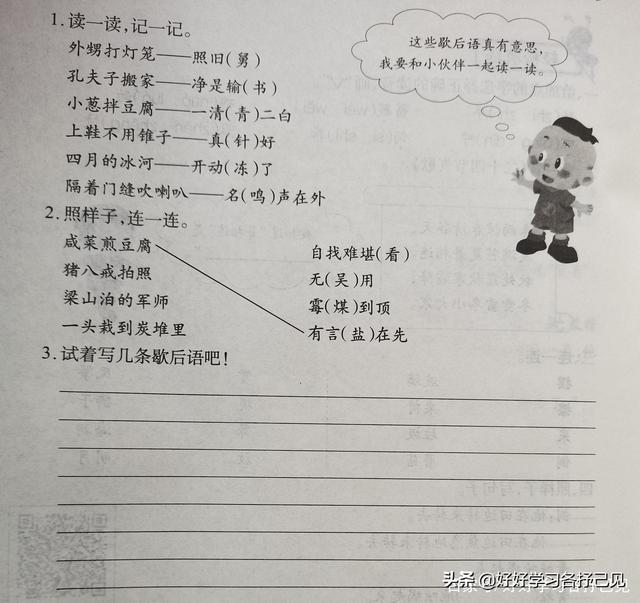 1.读一读,记一记。
外甥打灯笼——照旧(舅)
孔夫子搬家——净是输(书)
小葱拌豆腐——一清(青)二白
上鞋不用锥子——真(针)好
四月的冰河——开动(冻)了
隔着门缝吹喇叭——名(鸣)声在外
这些歇后语真有意思,
我要和小伙伴一起读一读。
2.照样子,连一连。
咸菜煎豆腐
自找难堪(看)
猪八戒拍照
无(吴)用
梁山泊的军师
霉(煤)到顶
一头栽到炭堆里
有言(盐)在先
3.试着写几条歇后语吧!
头条 @好好学习各抒己见